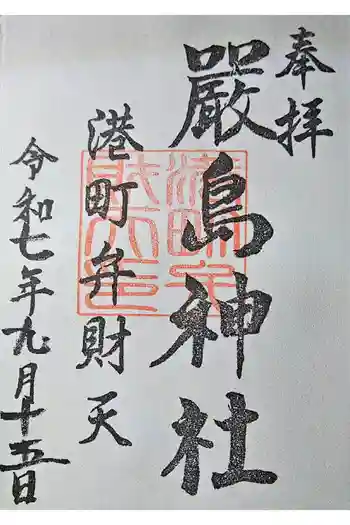 奉拝
厳島神社
港町弁財天
令和七年九月十五日